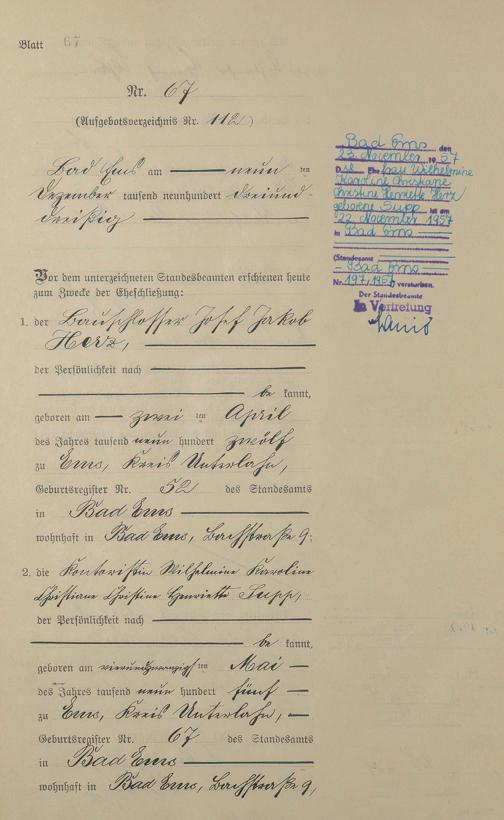 Blatt 67
Nr. 67
(Aufgebotsverzeichnis Nr. 112)
Bad Ems am — neun ten
Dezember tausend neunhundert dreiund
dreißig
Vor dem unterzeichneten Standesbeamten erschienen heute
zum Zwecke der Eheschließung:
1. der Bauschlosser Josef Jakob
Herz,
der Persönlichkeit nach
be kannt,
geboren am — zwei ten April
des Jahres tausend neun hundert zwölf
zu Ems, Kreis Unterlahn,
Geburtsregister Nr. 52 des Standesamts
in Bad Ems
wohnhaft in Bad Ems, Bachstraße 9;
2. die Kontoristin Wilhelmine Karoline
Christiane Christine Henriette Supp,
der Persönlichkeit nach
be kannt,
geboren am vierundzwanzigsten Mai —
des Jahres tausend neun hundert fünf —
zu Ems, Kreis Unterlahn, —
Geburtsregister Nr. 67 des Standesamts
in Bad Ems
wohnhaft in Bad Ems, Bachstraße 9,
Bad Ems, den
23. November 1957
Die Ehefrau Wilhelmine
Karoline Christiane
Christine Henriette Herz
geborene Supp ist am
22. November 1957
in Bad Ems
(Standesamt
Bad Ems
Nr. 197, 1957) verstorben.
Der Standesbeamte
In Vertretung